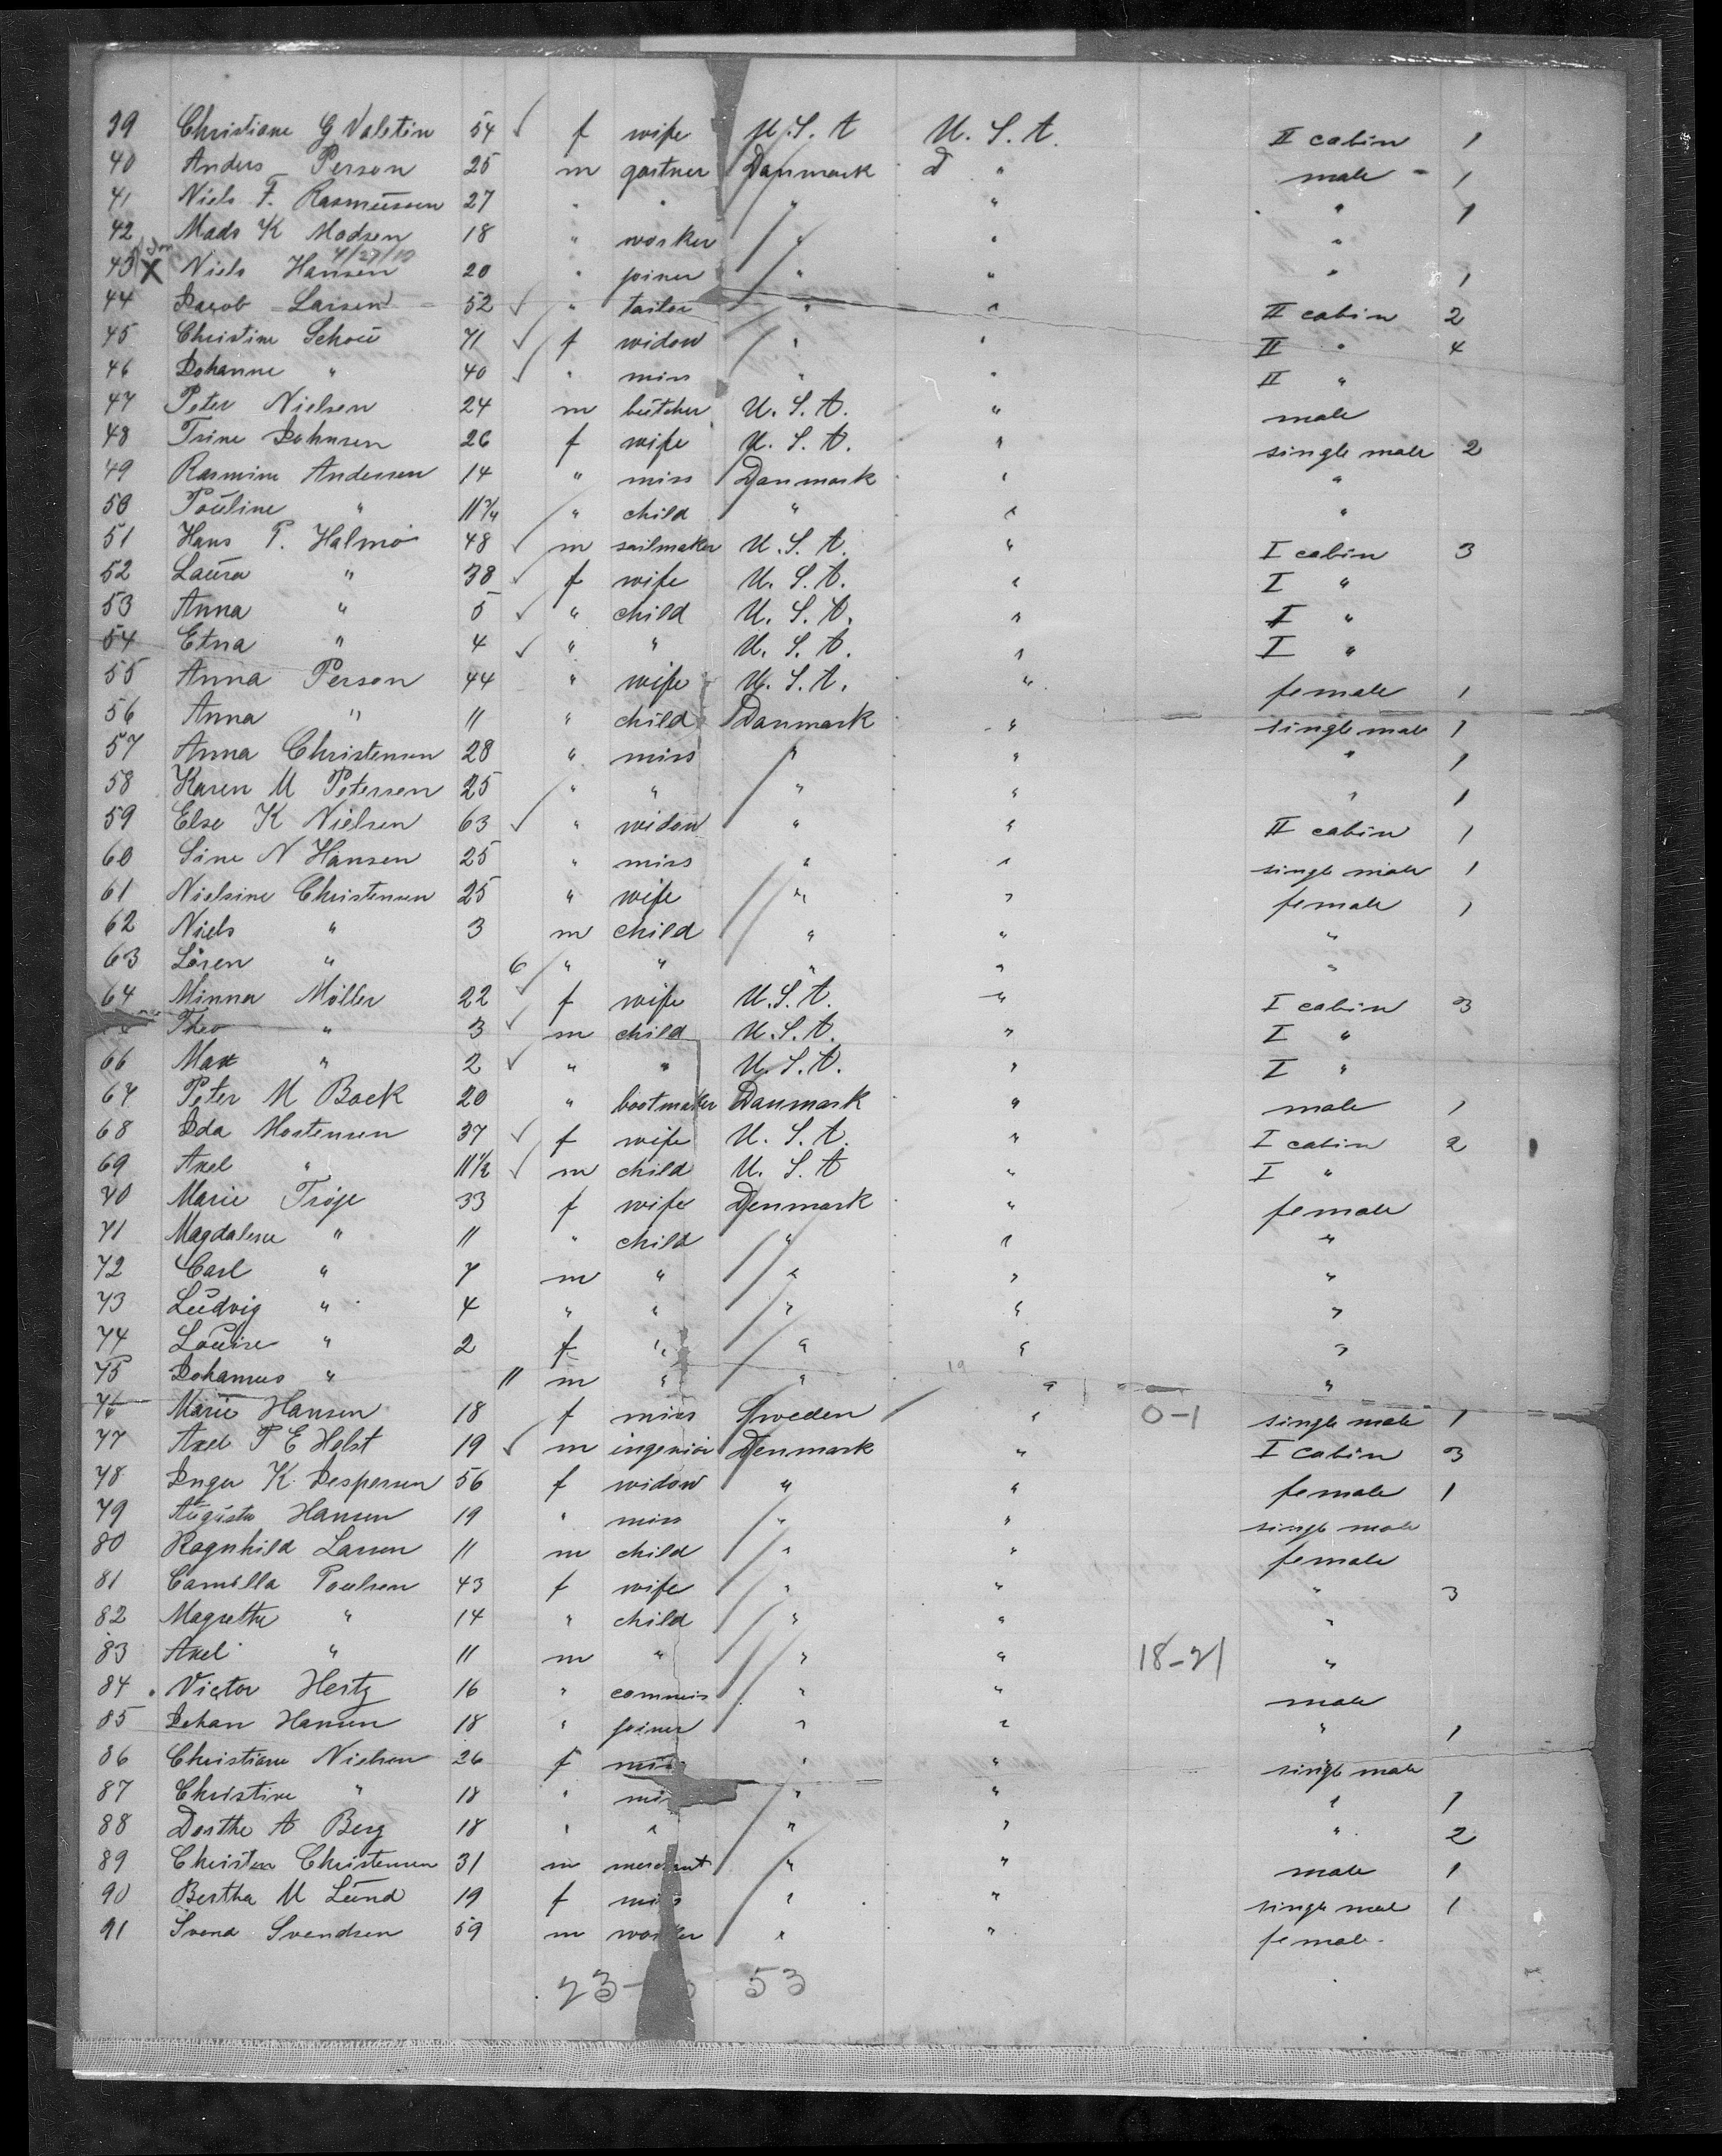 39 Christiane G Valetin 54 ✓ f wife U.S.A U.S.A. II cabin 1
40 Anders Person 25 m gartner Danmark d " male " 1
41 Niels F. Rasmussen 27 " " " " " 1
42 Mads K Madsen 18 " worker " " "
4/27/10
43 X Niels Hansen 20 " joiner " " " 1
44 Jacob Larsen 52 ✓ " tailor " " II cabin 2
45 Christine Schou 71 ✓ f widow " " II " 4
46 Johanne " 40 ✓ " miss " " II "
47 Peter Nielsen 24 m butcher U.S.A. " male
48 Trine Johnsen 26 f wife U.S.A. " single male 2
49 Rasmine Andersen 14 " miss Danmark " "
50 Pouline " 11 3/4 " child " " "
51 Hans P. Halmø 48 ✓ m sailmaker U.S.A. " I cabin 3
52 Laura " 38 ✓ f wife U.S.A. " I "
53 Anna " 5 ✓ " child U.S.A. " I "
54 Etna " 4 ✓ " " U.S.A. " I "
55 Anna Person 44 " wife U.S.A. " female 1
56 Anna " 11 " child Danmark " single male 1
57 Anna Christensen 28 " miss " " " 1
58 Karen M Petersen 25 " " " " " 1
59 Else K Nielsen 63 ✓ " widow " " II cabin 1
60 Sine N Hansen 25 " miss " " single male 1
61 Nielsine Christensen 25 " wife " " female 1
62 Niels " 3 m child " " "
63 Sören " 6 " " " " "
64 Minna Möller 22 ✓ f wife U.S.A. " I cabin 3
Theo " 3 ✓ m child U.S.A. " I "
66 Max " 2 ✓ " " U.S.A. " I "
67 Peter M Back 20 " bootmaker Danmark " male 1
68 Ida Mortensen 37 ✓ f wife U.S.A. " I cabin 2
69 Axel " 11 1/2 ✓ m child U.S.A " I "
70 Marie Trøje 33 f wife Denmark " female
71 Magdalene " 11 " child " " "
72 Carl " 7 m " " " "
73 Ludvig " 4 " " " " "
74 Louise " 2 f " " " "
75 Johannes " 11 m " " " "
76 Marie Hansen 18 f miss Sweden " 0-1 single male 1
77 Axel P E Holst 19 ✓ m ingeniör Denmark " I cabin 3
78 Inger K. Jespersen 56 f widow " " female 1
79 Augusta Hansen 19 " miss " " single male
80 Ragnhild Larsen 11 m child " " female
81 Camilla Poulsen 43 f wife " " " 3
82 Magrethe " 14 " child " " "
83 Axel " 11 m " " " 18-21 "
84 Victor Hertz 16 " commis " " male
85 Johan Hansen 18 " joiner " " " 1
86 Christiane Nielsen 26 f miss " " single male
87 Christine " 18 " mi " " " 1
88 Dorthe A Berg 18 " " " " " 2
89 Christen Christensen 31 m merchant " " male 1
90 Bertha M Lund 19 f miss " " single male 1
91 Svend Svendsen 59 m worker " " female
23- 53